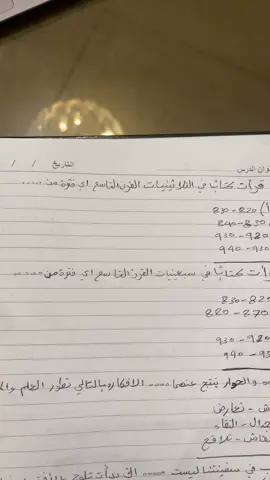 وان الدرس التاريخ / /
قرأت كتابًا في الثلاثينيات القرن التاسع اي فترة من .....
أ) 220 - 230
830 - 840
920 - 930
930 - 940
رأت كتابًا في سبعينيات القرن التاسع اي فترة من .....
820 - 830
270 - 220
920 - 930
93 - 940
والحوار ينتج عنهما ..... الافكار وبالتالي تطور العلم
ض - تعارض
دال - التقاء
قاش - تلاقح
في سفينتنا ليست ..... التي بدأت تلوح